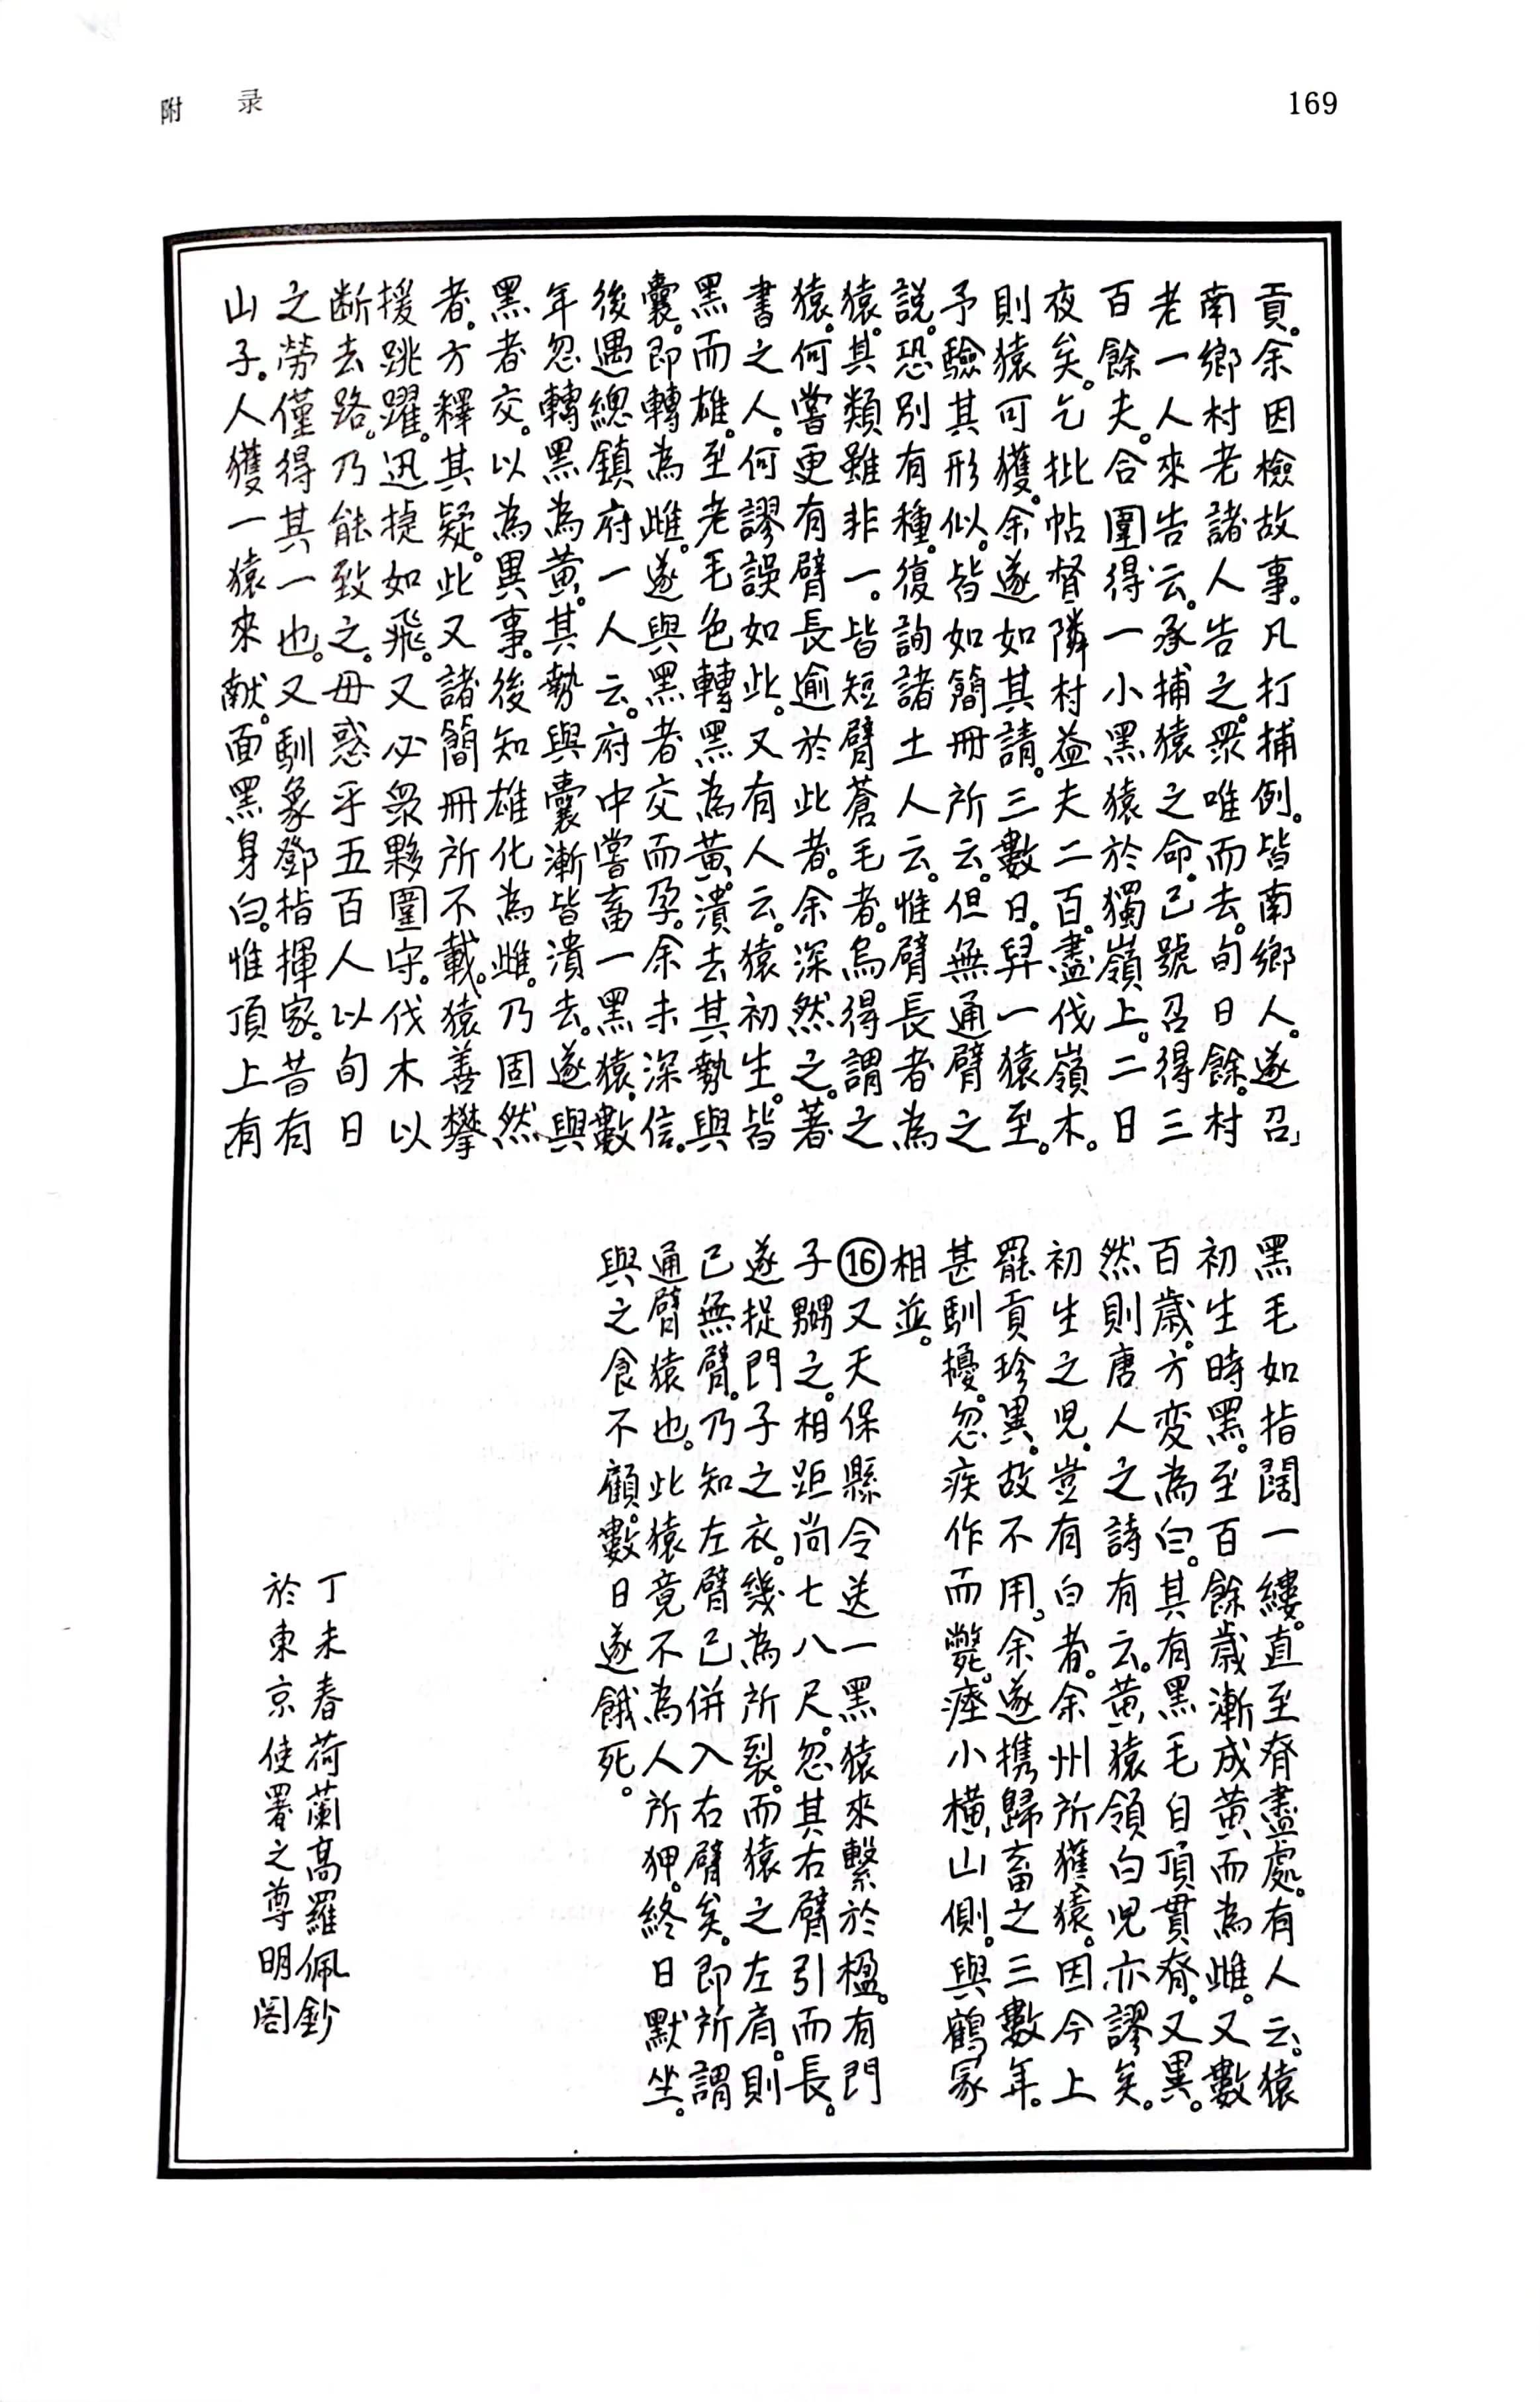 附 录
169
貢。余因檢故事。凡打捕例。皆南鄉人。遂召
南鄉村老諸人告之。衆唯而去。旬日餘。村
老一人來告云。承捕猿之命。已號召得三
百餘夫。合圍得一小黑猿於獨嶺上。二日
夜矣。乞批帖督隣村益夫二百。盡伐嶺木。
則猿可獲。余遂如其請。三數日。舁一猿至。
予驗其形似。皆如簡冊所云。但無通臂之
說。恐別有種。復詢諸土人云。惟臂長者為
猿。其類雖非一。皆短臂蒼毛者。烏得謂之
猿。何嘗更有臂長逾於此者。余深然之。著
書之人。何謬誤如此。又有人云。猿初生。皆
黑而雄。至老毛色轉黑為黃。潰去其勢與
囊。即轉為雌。遂與黑者交而孕。余未深信。
後遇總鎮府一人云。府中嘗畜一黑猿。數
年忽轉黑為黃。其勢與囊漸皆潰去。遂與
黑者交。以為異事。後知雄化為雌。乃固然
者。方釋其疑。此又諸簡冊所不載。猿善攀
援跳躍。迅捷如飛。又必衆夥圍守。伐木以
断去路。乃能致之。毋惑乎五百人以旬日
之勞僅得其一也。又馴象鄧指揮家。昔有
山子。人獲一猿來献。面黑身白。惟頂上有
黑毛如指闊一縷。直至脊盡處。有人云。猿
初生時黑。至百餘歲漸成黃而為雌。又數
百歲。方变為白。其有黑毛自頂貫脊。又異。
然則唐人之詩有云。黃猿領白児亦謬矣。
初生之児。豈有白者。余州所獲猿。因今上
罷貢珍異。故不用。余遂携歸畜之三數年。
甚馴擾。忽疾作而斃。瘞小橫山側。與鶴冢
相並。
⑯又天保縣令送一黑猿來繫於楹。有門
子嬲之。相距尚七八尺。忽其右臂引而長。
遂捉門子之衣。幾為所裂。而猿之左肩。則
已無臂。乃知左臂已併入右臂矣。即所謂
通臂猿也。此猿竟不為人所狎。終日默坐。
與之食不顧。數日遂餓死。
丁未春荷蘭高羅佩鈔
於東京使署之尊明閣